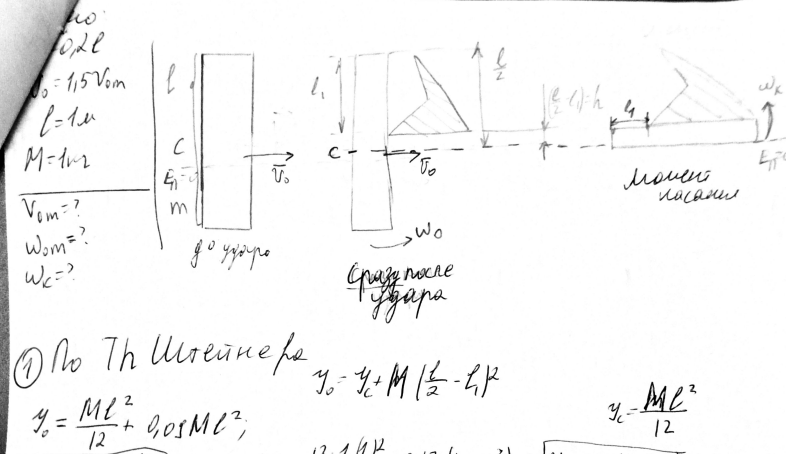 0,2l
V₀ = 1,5V₀m
l = 1м
M = 1кг
V₀m = ?
ω₀m = ?
ωк = ?
l
C
Eп=0
m
V̄₀
до удара
l₁
C
V̄₀
ω₀
сразу после
удара
l/2
(l/2 - l₁) = h
l₁
ωк
Eп=0
Момент
касания
① По Th Штейнера
y₀ = yc + M(l/2 - l₁)²
y₀ = Ml²/12 + 0,09Ml²;
yc = Ml²/12